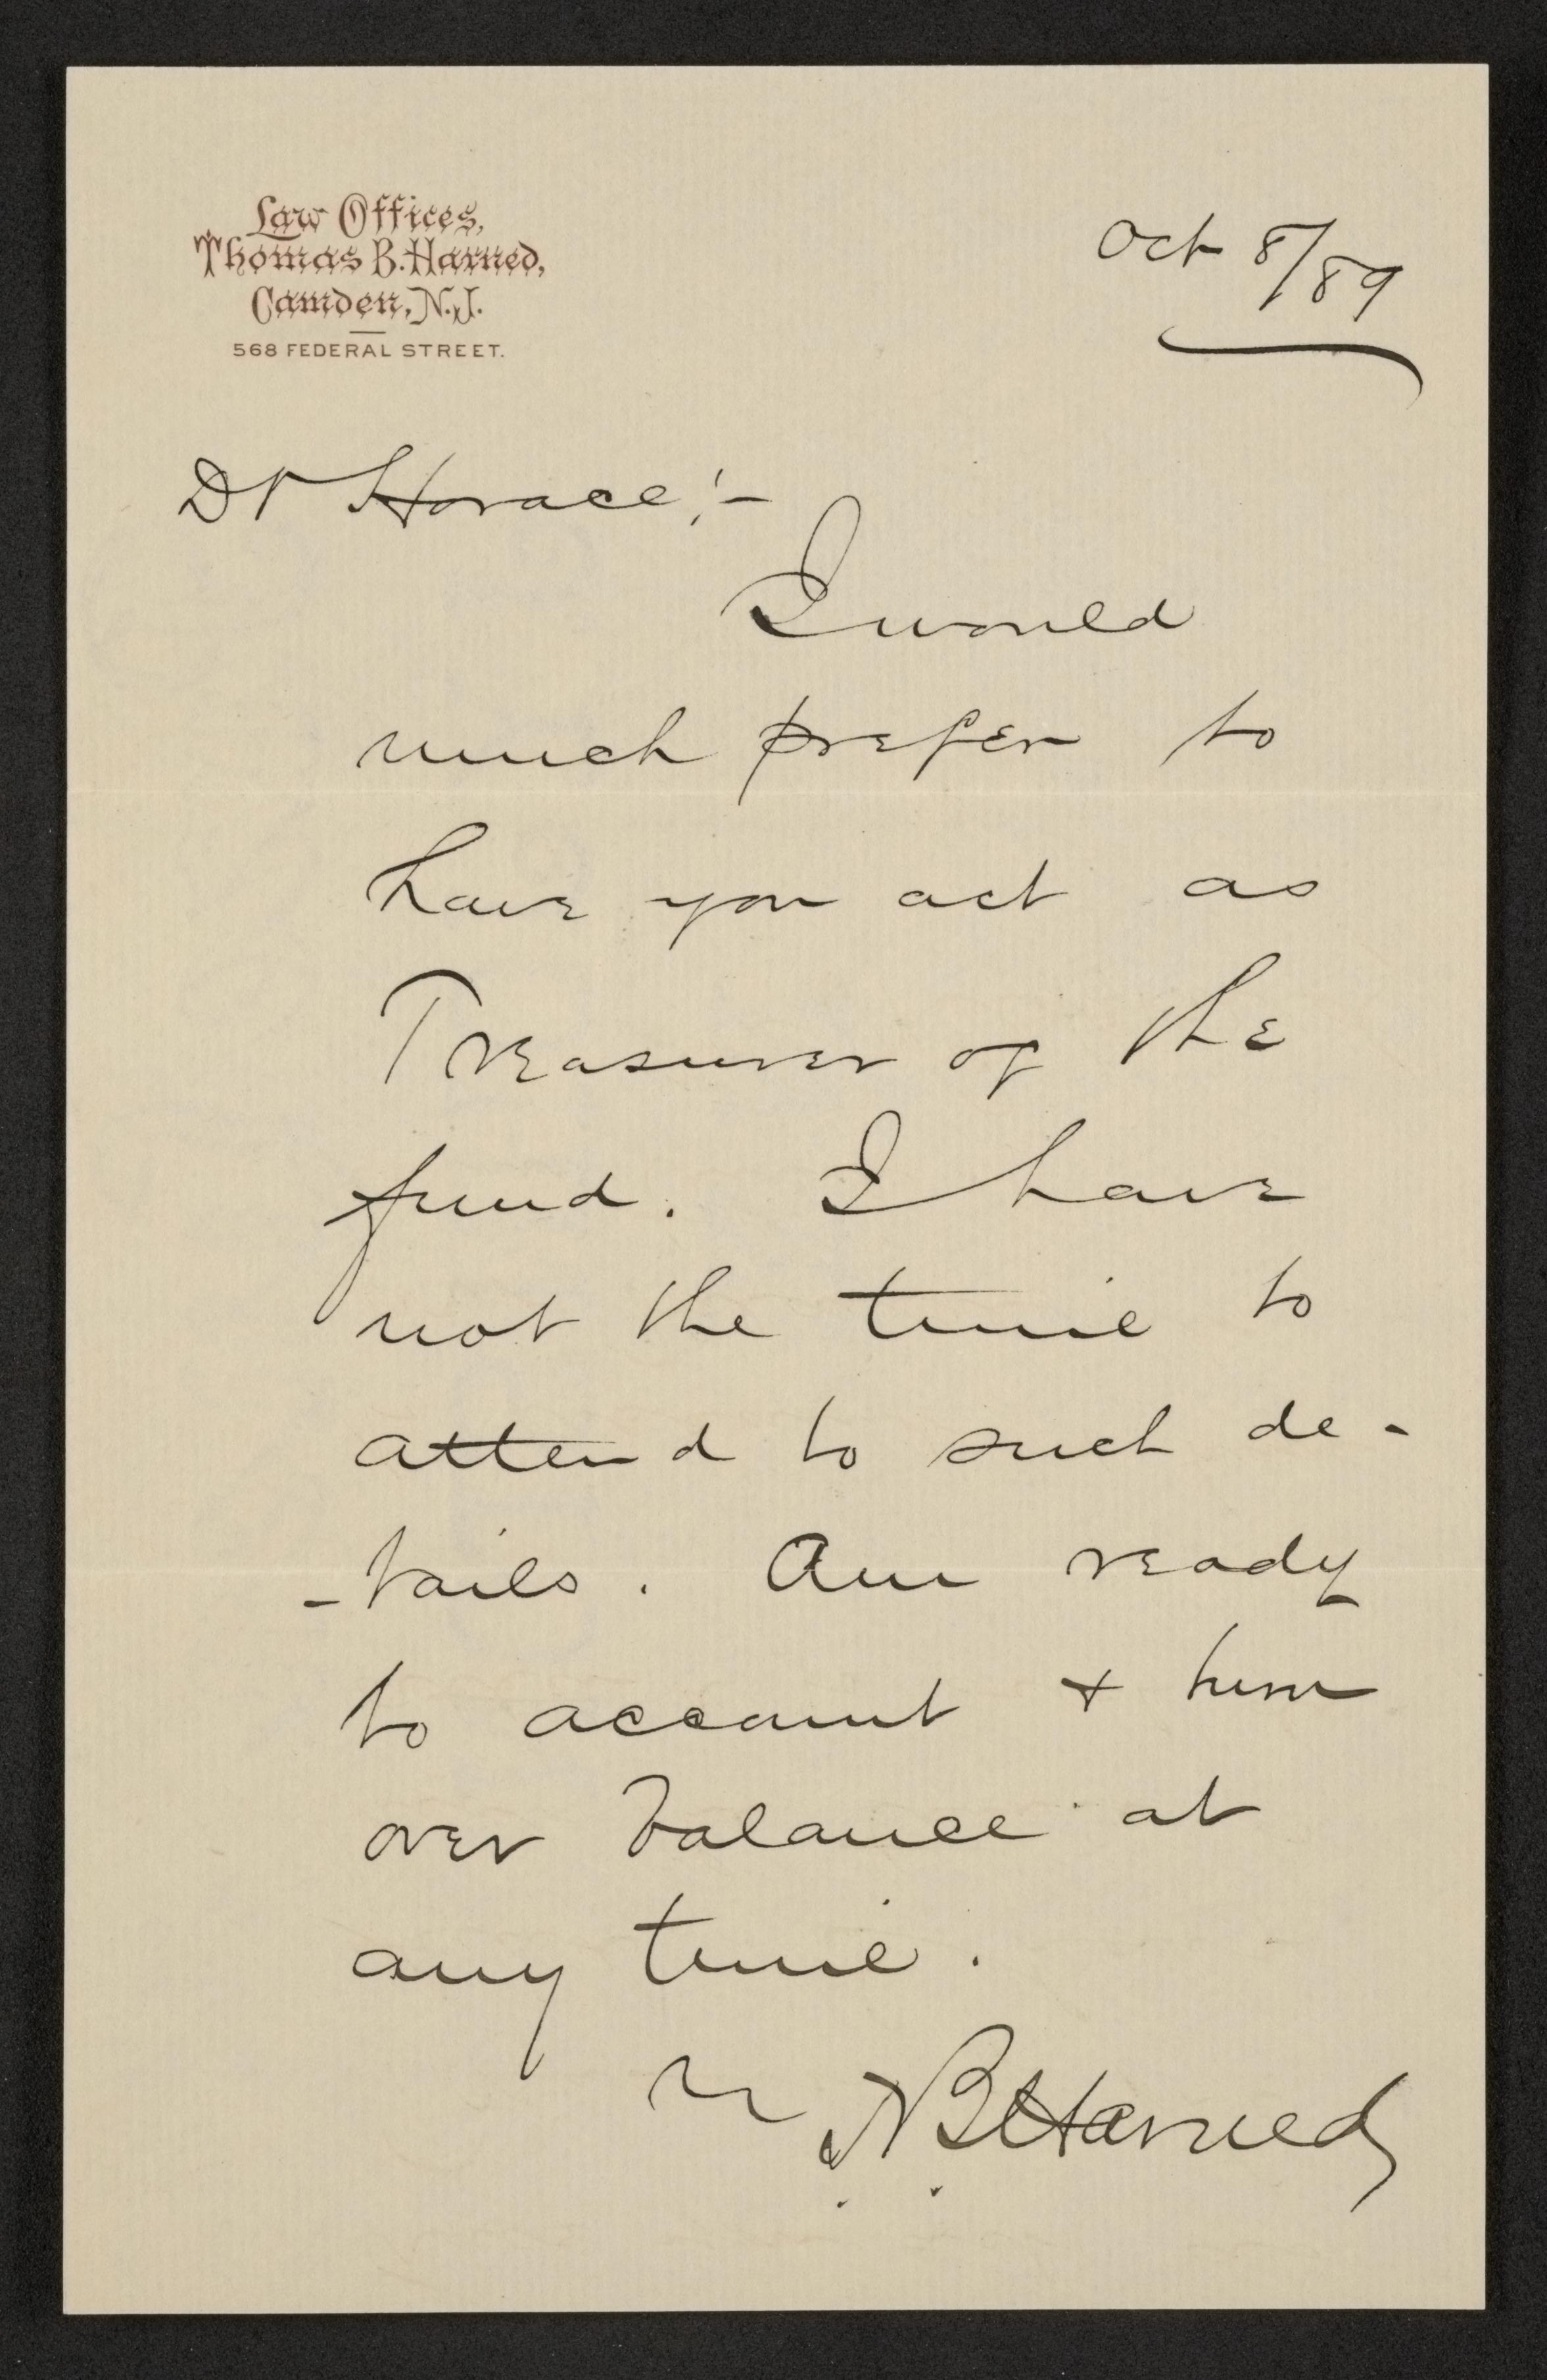 Law Offices,
Thomas B. Harned,
Camden, N.J.
568 FEDERAL STREET.
Oct 8/89
Dr Horace:-
I would
much prefer to
have you act as
Treasurer of the
fund. I have
not the time to
attend to such de-
-tails. Am ready
to account + turn
over balance at
any time.
TBHarned